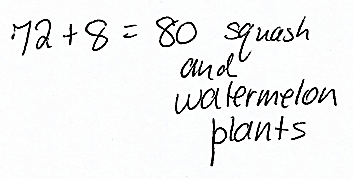 72 + 8 = 80 squash
and
watermelon
plants